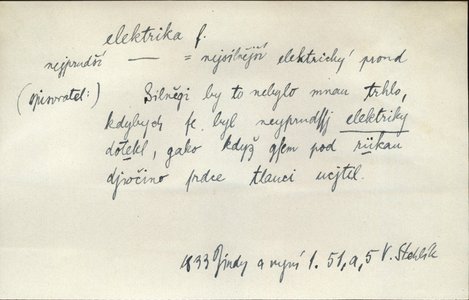 elektrika f.
nejprudší — = nejsilnější elektrický proud
(spisovatel:) Silněgi by to nebylo mnau trhlo,
kdybych se byl neyprudssj elektriky
dotekl, gako když gsem pod rükau
djwčino srdce tlauci ucjtil.
1833 Jindy a nynj 1. 51, a, 5 V. Stehlík